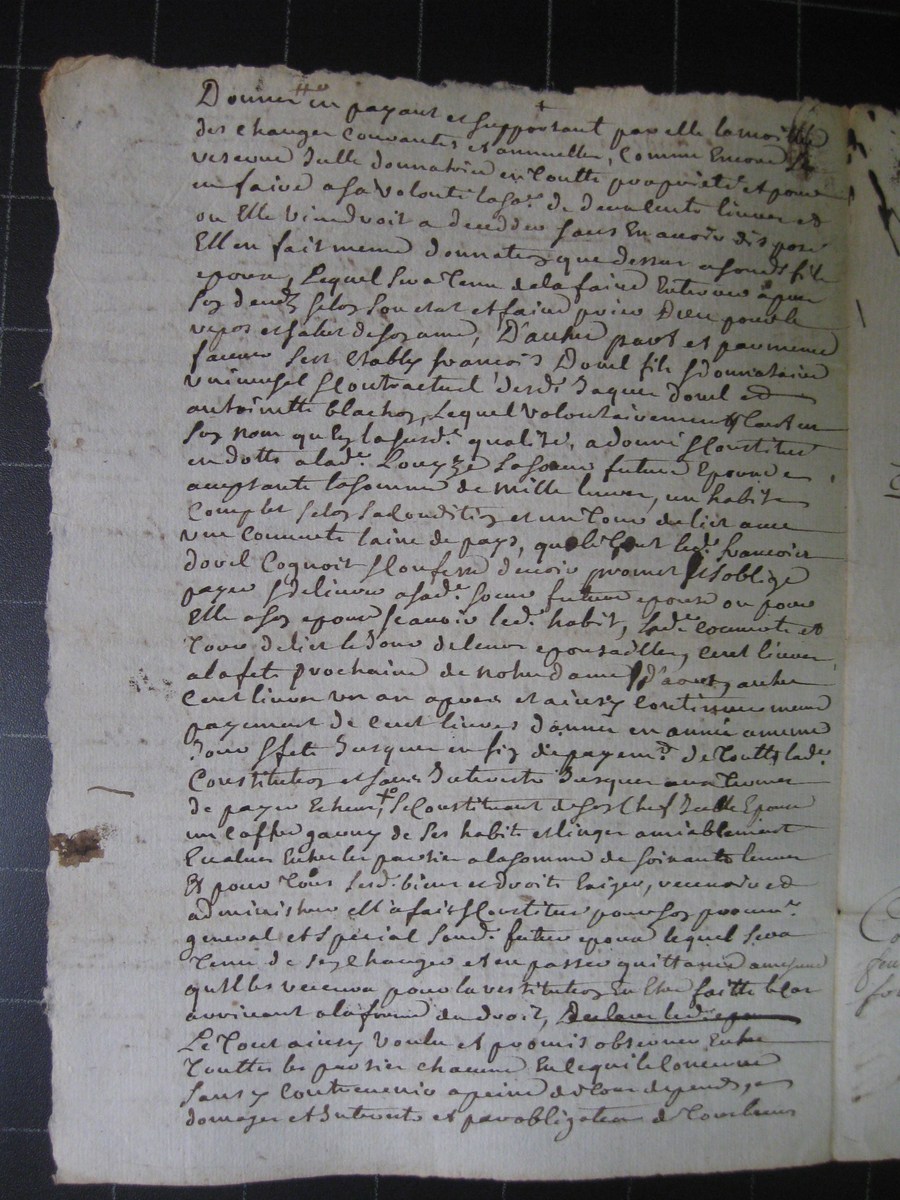 Donner en payant et supportant par elle la moitié
des charges courantes et annuelles, comme encore se
reserve delle donnatrice en toutte proprieté et pour
en faire a sa volonté la so.e de de livres et
ou elle viendroit a deceder sans en avoir disposé
Elle en fait meme donnatios que dessus a sond. fils
epoux, lequel sera tenu de la faire enterrer apres
son deces selon son etat et faire prier Dieu pour le
repos et salut de son ame, D'autre part et par meme
faveur s'est etably françois Dovel fils & donnataire
universel & contractuel desd. Jaques dovel et
antoinette blachon, lequel volontairement tant en
son nom qu'en la susd.e qualité, a donné & constitué
en dotte a lad.e Louyze sa soeur future epouse
acceptante la somme de mille livres, un habit
complet selon sa condition et un tour de lict avec
une couverte laine de pays, quoi led. francois
dovel cognoit & confesse devoir promet & soblige
payer & delivrer a sad.e soeur future epouse ou pour
elle a son epoux scavoir led. habit, lad.e couverte et
tour de lict le jour de leurs epousailles, cent livres
a la fete prochaine de notre dame d'aout, autre
cent livres un an apres et ainsy continuer meme
payement de cent livres d'année en année a meme
jour & fete jusques en fin de payem.t de toutte lad.e
constitution et sans interests jusques aux termes
de payer echeus, se constituant de son chef delle Epouse
un coffre garny de ses habits et linges amiablement
Evalués entre les parties a la somme de soixante livres
Et pour tous sesd. biens et droits exiger, recevoir et
administrer elle a fait & constitué pour son procur.r
general et special sond. futur epoux lequel sera
tenu de s'en charger et en passer quittance a mesure
quil les recevra pour la restitution en etre faitte le cas
arrivant a la forme du droit,
Le tout ainsy voulu et promis observer entre
touttes les parties chacune en ce qui le concerne
sans y contrevenir a peine de tous depends,
domages et interests et par obligation de tous leurs